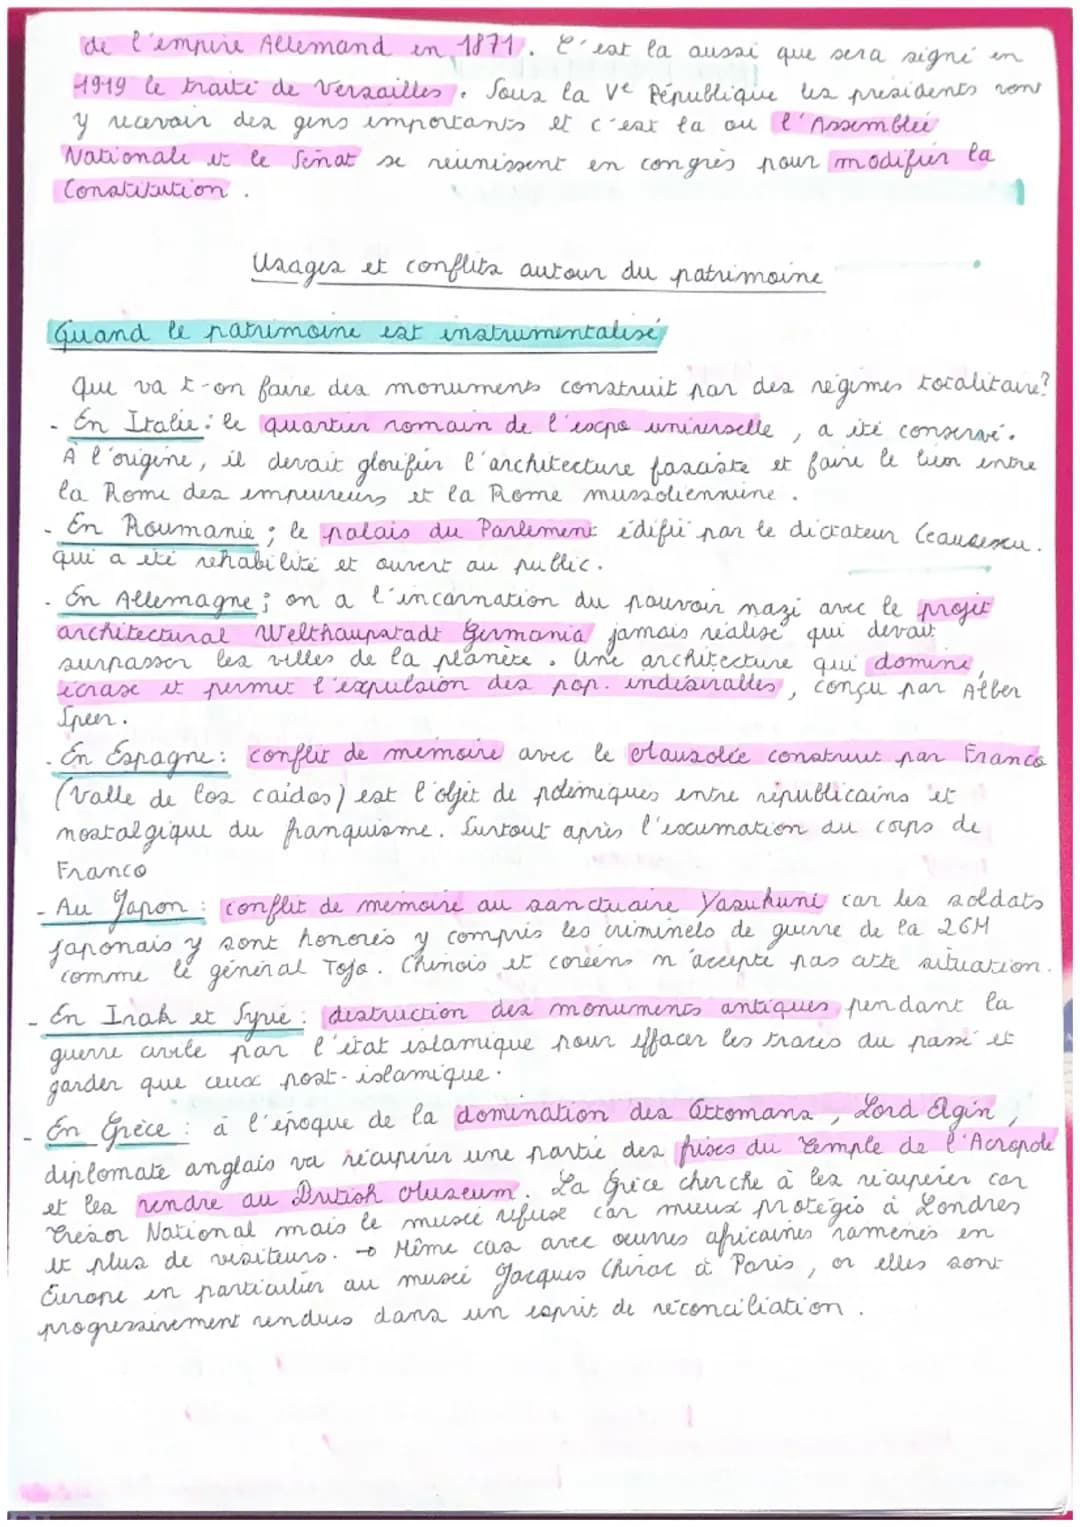 de l'empire Allemand en 1871. C'est la aussi que sera signé en
1919 le traité de Versailles. Sous la Ve République les présidents vont
y recevoir des gens importants et c'est la ou l'Assemblée
Nationale et le Sénat se réunissent en congrès pour modifier la
Constitution.
Usages et conflits autour du patrimoine
Quand le patrimoine est instrumentalisé
Que va t-on faire des monuments construit par des régimes totalitaire?
- En Italie : le quartier romain de l'expo universelle, a été conservé.
À l'origine, il devait glorifier l'architecture fasciste et faire le lien entre
la Rome des empereurs et la Rome mussoliennine.
- En Roumanie ; le palais du Parlement édifié par le dictateur Ceausescu.
qui a été réhabilité et ouvert au public.
- En Allemagne ; on a l'incarnation du pouvoir nazi avec le projet
architectural Welthaupstadt Germania jamais réalisé qui devait
surpasser les villes de la planète. Une architecture qui domine,
écrase et permet l'expulsion des pop. indésirables, conçu par Alber
Speer.
- En Espagne : conflit de mémoire avec le Mausolée construit par Franco
(Valle de los caidos) est l'objet de polémiques entre républicains et
nostalgique du franquisme. Surtout après l'exumation du corps de
Franco
- Au Japon : conflit de mémoire au sanctuaire Yasukuni car les soldats
japonais y sont honorés y compris les criminels de guerre de la 2GM
comme le général Tojo. Chinois et coréens n'accepte pas cette situation.
- En Irak et Syrie : destruction des monuments antiques pendant la
guerre civile par l'état islamique pour effacer les traces du passé et
garder que ceux post-islamique.
- En Grèce : à l'époque de la domination des Ottomans, Lord Elgin,
diplomate anglais va récupérer une partie des frises du temple de l'Acropole
et les rendre au British Museum. La Grèce cherche à les récupérer car
trésor National mais le musée refuse car mieux protégés à Londres
et plus de visiteurs. → Même cas avec œuvres africaines ramenés en
Europe en particulier au musée Jacques Chirac à Paris, or elles sont
progressivement rendues dans un esprit de réconciliation.